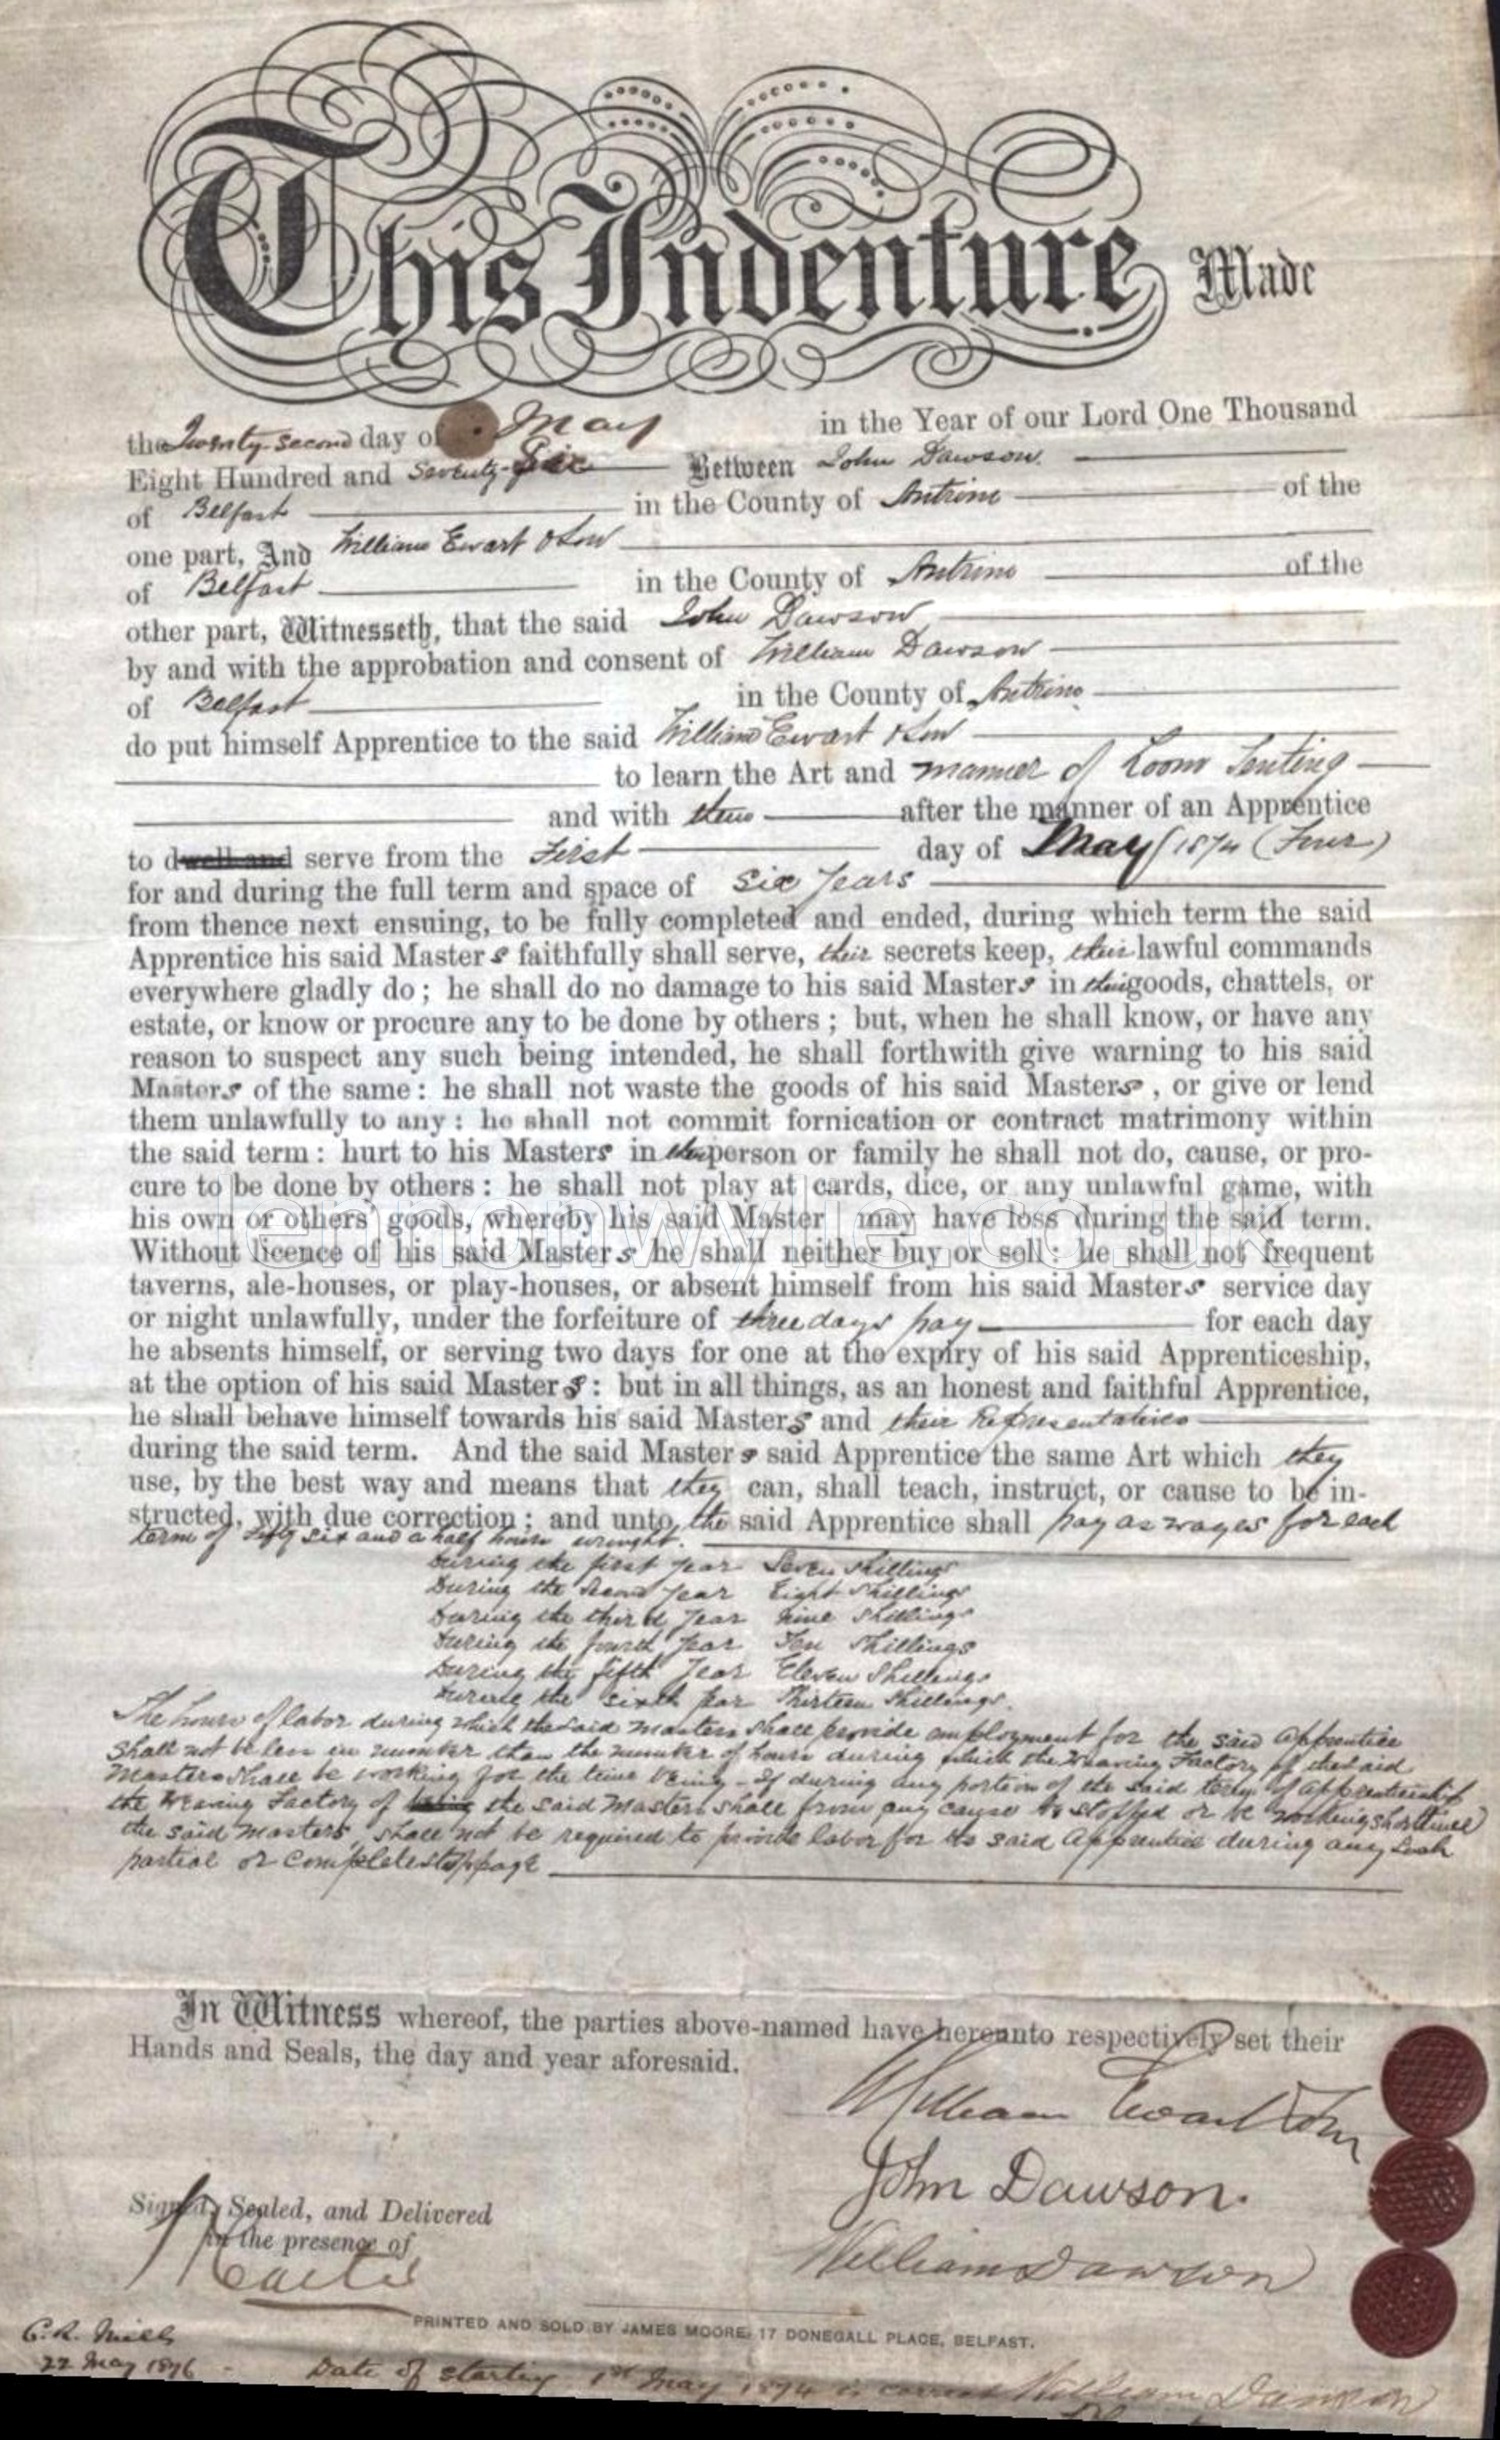 This Indenture Made
the Twenty-second day of May in the Year of our Lord One Thousand
Eight Hundred and Seventy-Six Between John Dawson
of Belfast in the County of Antrim of the
one part, And William Ewart & Son
of Belfast in the County of Antrim of the
other part, Witnesseth, that the said John Dawson
by and with the approbation and consent of William Dawson
of Belfast in the County of Antrim
do put himself Apprentice to the said William Ewart & Son
to learn the Art and manner of Loom Tenting
and with them after the manner of an Apprentice
to dwell and serve from the First day of May (1874 (Four)
for and during the full term and space of Six Years
from thence next ensuing, to be fully completed and ended, during which term the said
Apprentice his said Masters faithfully shall serve, their secrets keep, their lawful commands
everywhere gladly do; he shall do no damage to his said Masters in their goods, chattels, or
estate, or know or procure any to be done by others; but, when he shall know, or have any
reason to suspect any such being intended, he shall forthwith give warning to his said
Masters of the same: he shall not waste the goods of his said Masters, or give or lend
them unlawfully to any: he shall not commit fornication or contract matrimony within
the said term: hurt to his Masters in their person or family he shall not do, cause, or pro-
cure to be done by others: he shall not play at cards, dice, or any unlawful game, with
his own or others' goods, whereby his said Master may have loss during the said term.
lennonwylie.co.uk
Without licence of his said Masters he shall neither buy or sell: he shall not frequent
taverns, ale-houses, or play-houses, or absent himself from his said Masters service day
or night unlawfully, under the forfeiture of three days pay for each day
he absents himself, or serving two days for one at the expiry of his said Apprenticeship,
at the option of his said Masters: but in all things, as an honest and faithful Apprentice,
he shall behave himself towards his said Masters and their Representatives
during the said term. And the said Masters said Apprentice the same Art which they
use, by the best way and means that they can, shall teach, instruct, or cause to be in-
structed, with due correction; and unto the said Apprentice shall pay as wages for each
term of fifty six and a half hours wrought.
During the first year Seven Shillings
During the Second Year Eight Shillings
During the third Year Nine Shillings
During the fourth Year Ten Shillings
During the fifth Year Eleven Shillings
During the sixth Year Thirteen Shillings.
The hours of labor during which the said Masters shall provide employment for the said Apprentice
Shall not be less in number than the number of hours during which the Weaving Factory of the said
Masters shall be working for the time being - If during any portion of the said term of apprenticeship
the Weaving Factory of the said Masters shall from any cause be stopped or be working short time
the said Masters, shall not be required to provide labor for the said Apprentice during any such
partial or complete stoppage
In Witness whereof, the parties above-named have hereunto respectively set their
Hands and Seals, the day and year aforesaid.
William Ewart & Son
John Dawson.
Signed, Sealed, and Delivered
in the presence of
William Dawson
PRINTED AND SOLD BY JAMES MOORE, 17 DONEGALL PLACE, BELFAST.
C.R. Mills
22 May 1876 - Date of starting 1st May 1874 is correct William Dawson